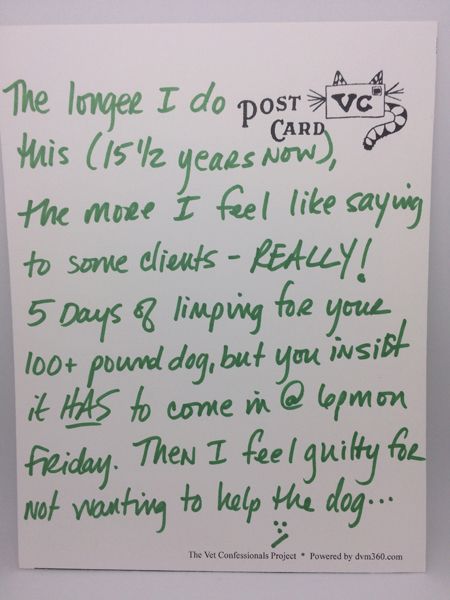 The longer I do
POST CARD VC
this (15 1/2 years NOW),
the more I feel like saying
to some clients - REALLY!
5 Days of limping for your
100+ pound dog, but you insist
it HAS to come in @ 6pm on
Friday. Then I feel guilty for
not wanting to help the dog...
The Vet Confessionals Project * Powered by dvm360.com